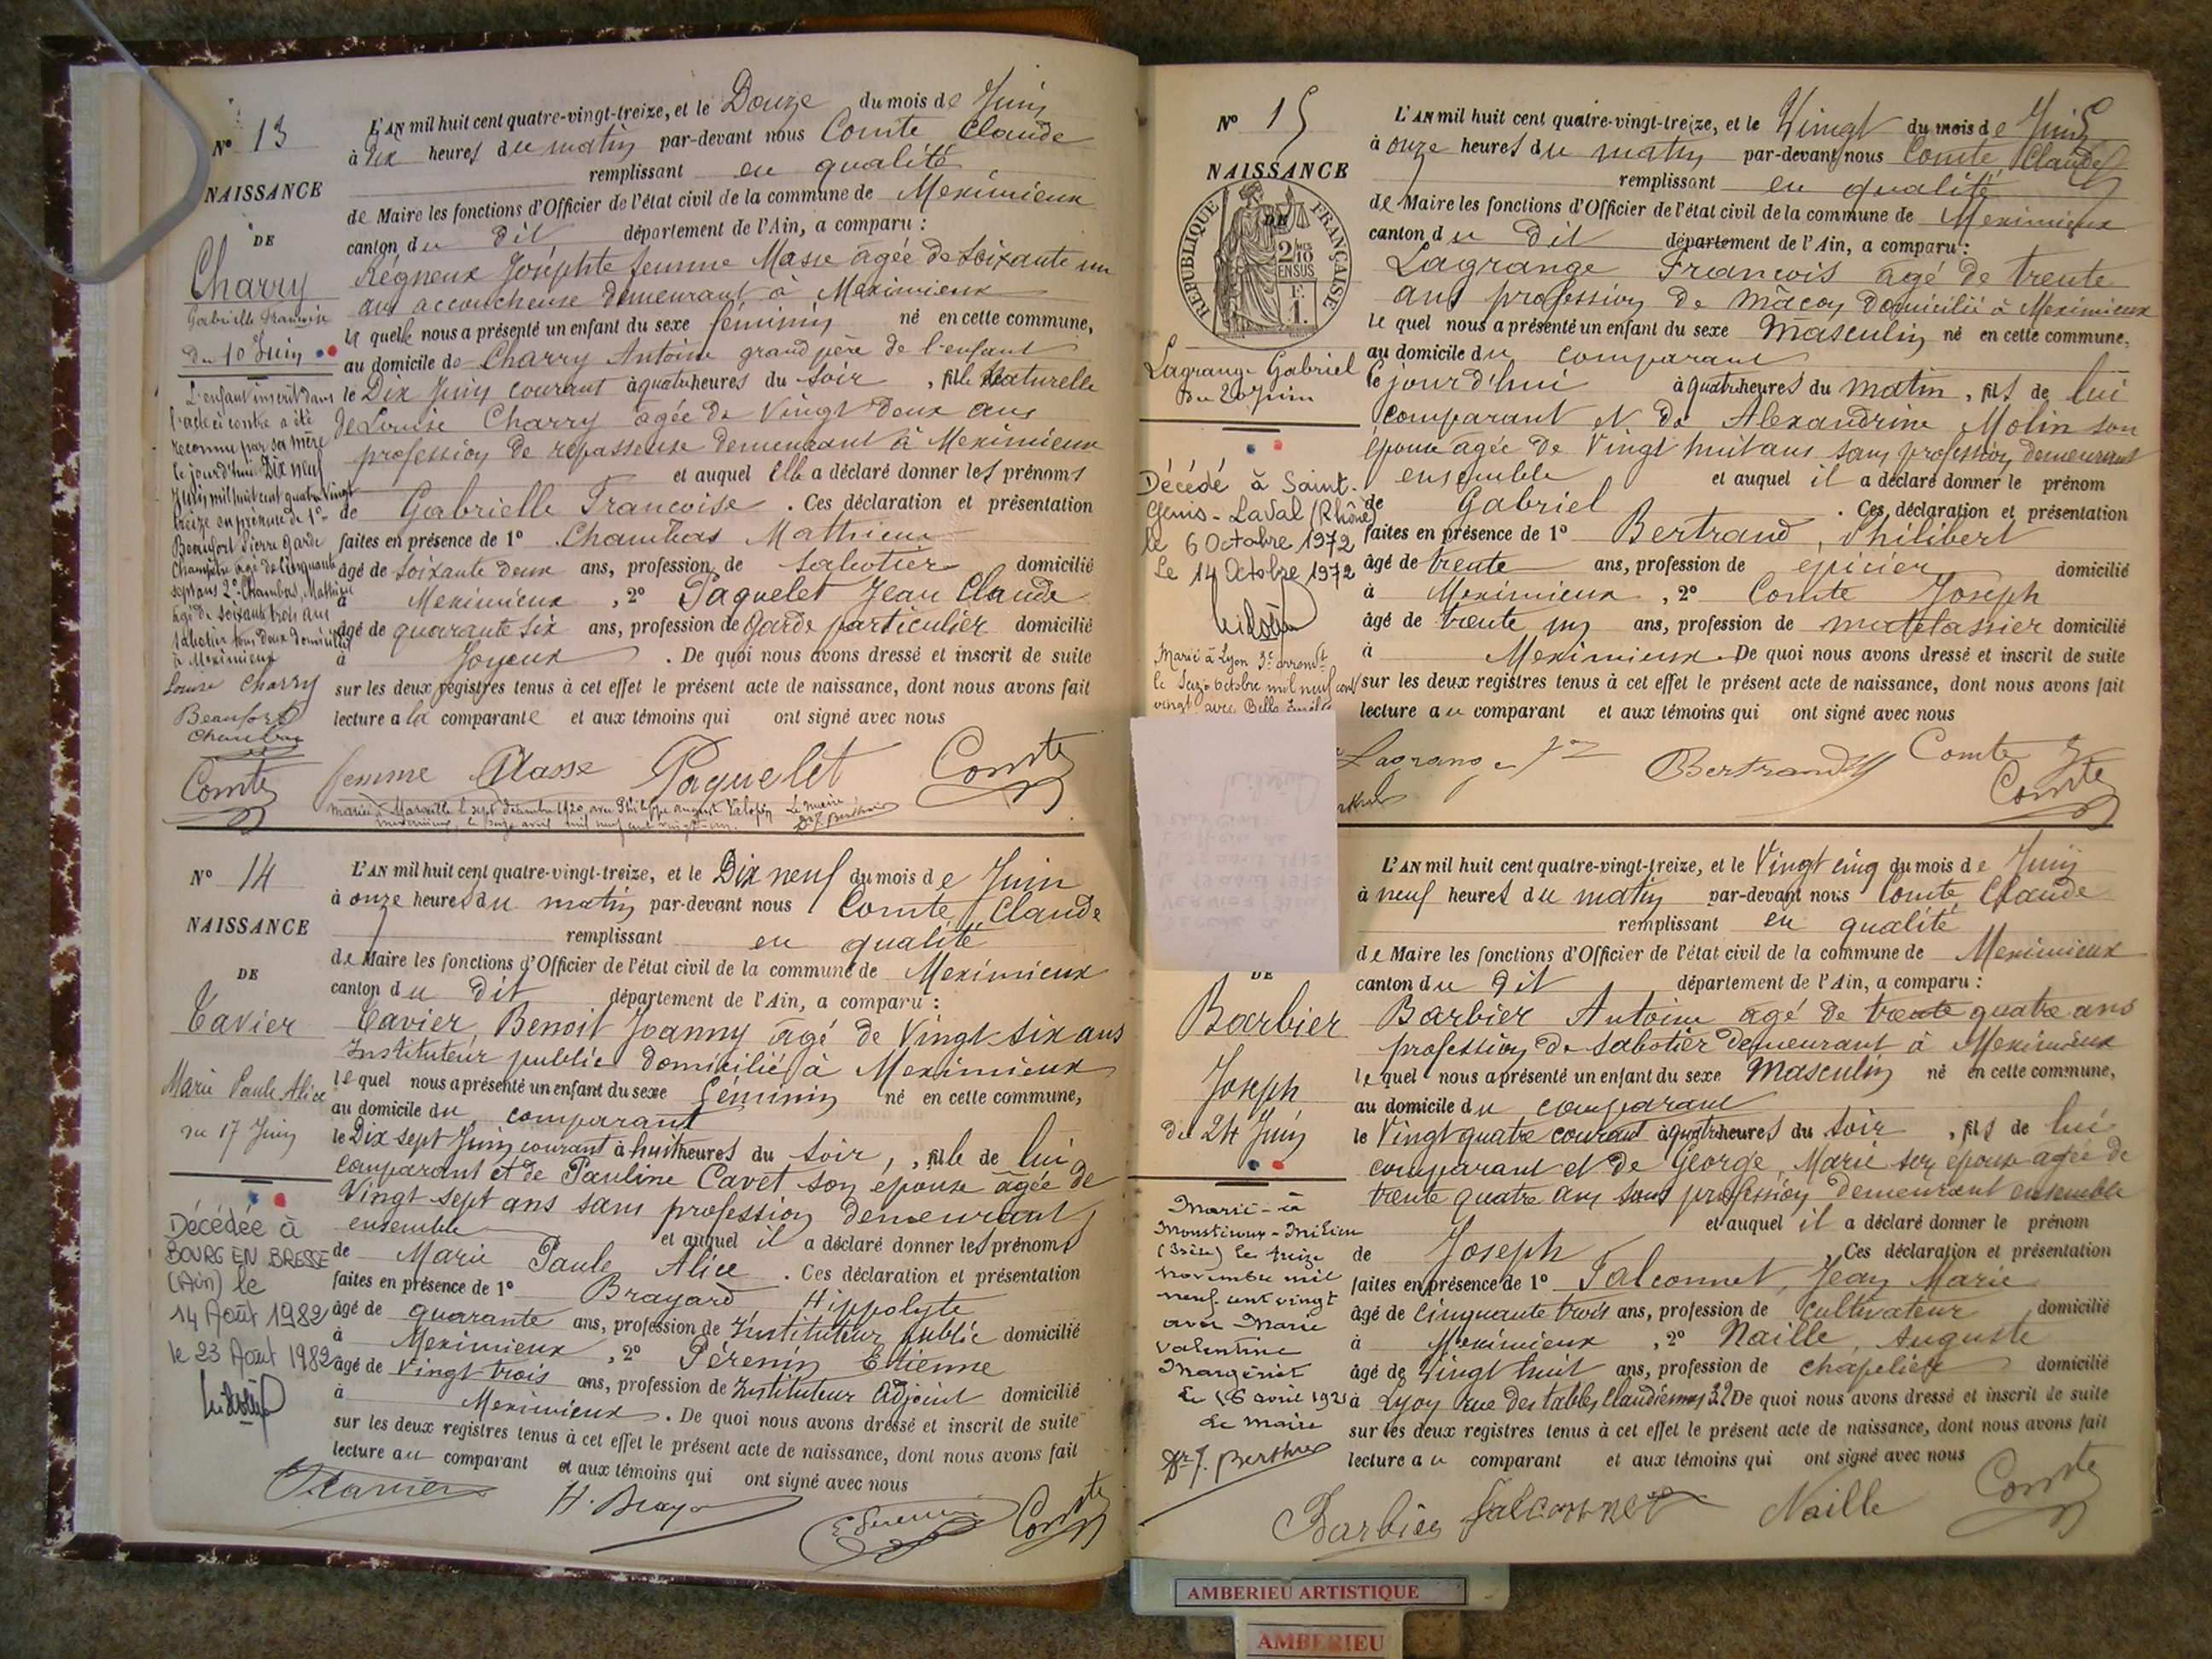 N° 13
NAISSANCE
DE
Charry
Gabrielle Francoise
Du 10 Juin
L'enfant inscrit dans
l'acte ci contre a été
reconnu par sa mère
le jourd'hui Dix neuf
Juin mil huit cent quatre vingt
treize en présence de 1°
Beaufort Pierre garde
champêtre agé de cinquante
sept ans 2° Chambas, Mathieu
agé de soixante trois ans
sabotier tous deux domiciliés
à Meximieux
Louise Charry
Beaufort
Chambas
Comte
L'AN mil huit cent quatre-vingt-treize, et le Douze du mois de Juin
à dix heures du matin par-devant nous Comte Claude
remplissant en qualité
de Maire les fonctions d'Officier de l'état civil de la commune de Meximieux
canton du dit département de l'Ain, a comparu :
Régneux Joséphte femme Masse agée de soixante un
ans accoucheuse demeurant à Meximieux
la quelle nous a présenté un enfant du sexe féminin né en cette commune,
au domicile de Charry Antoine grand père de l'enfant
le Dix Juin courant à quatre heures du soir, fille Naturelle
de Louise Charry agée de Vingt deux ans
profession de repasseuse demeurant à Meximieux
et auquel Elle a déclaré donner les prénoms
de Gabrielle Francoise. Ces déclaration et présentation
faites en présence de 1° Chambas Mathieu
âgé de soixante deux ans, profession de sabotier domicilié
à Meximieux, 2° Paquelet Jean Claude
âgé de quarante six ans, profession de Garde particulier domicilié
à Joyeux. De quoi nous avons dressé et inscrit de suite
sur les deux registres tenus à cet effet le présent acte de naissance, dont nous avons fait
lecture a la comparante et aux témoins qui ont signé avec nous
femme Masse Paquelet Comte
Mariée à Marseille le sept décembre 1920 avec Philippe August Le maire
Meximieux, le seize avril mil neuf cent vingt-un. Dr J. Berthier
N° 14
NAISSANCE
DE
Tavier
Marie Paule Alice
du 17 Juin
Décédée à
BOURG EN BRESSE
(Ain) le
14 Août 1982
le 23 Août 1982
L'AN mil huit cent quatre-vingt-treize, et le Dix neuf du mois de Juin
à onze heures du matin par-devant nous Comte, Claude
remplissant en qualité
de Maire les fonctions d'Officier de l'état civil de la commune de Meximieux
canton du dit département de l'Ain, a comparu :
Tavier, Benoit Joanny agé de Vingt six ans
Instituteur public domicilié à Meximieux
le quel nous a présenté un enfant du sexe féminin né en cette commune,
au domicile du comparant
le Dix sept Juin courant à huit heures du soir, , fille de lui
comparant et de Pauline Cavet son épouse âgée de
Vingt sept ans sans profession demeurant
ensemble et auquel il a déclaré donner les prénoms
de Marie Paule Alice. Ces déclaration et présentation
faites en présence de 1° Brayard Hippolyte
âgé de quarante ans, profession de Instituteur public domicilié
à Meximieux, 2° Pérenin Etienne
âgé de Vingt trois ans, profession de Instituteur Adjoint domicilié
à Meximieux. De quoi nous avons dressé et inscrit de suite
sur les deux registres tenus à cet effet le présent acte de naissance, dont nous avons fait
lecture au comparant et aux témoins qui ont signé avec nous
Tavier H. Braya E Perenin Comte
N° 15
NAISSANCE
DE
REPUBLIQUE FRANÇAISE
2/10
EN SUS
F.
1.
Lagrange Gabriel
Du 20 Juin
Décédé à Saint-
Genis-Laval (Rhône)
le 6 Octobre 1972
Le 14 Octobre 1972
Marié à Lyon 3e arrondt
le Seize octobre mil neuf cent
vingt avec Bello
L'AN mil huit cent quatre-vingt-treize, et le Vingt du mois de Juin
à onze heures du matin par-devant nous Comte, Claude
remplissant en qualité
de Maire les fonctions d'Officier de l'état civil de la commune de Meximieux
canton du dit département de l'Ain, a comparu :
Lagrange Francois agé de trente
ans profession de mâcon domicilié à Meximieux
le quel nous a présenté un enfant du sexe Masculin né en cette commune,
au domicile du comparant
le jourd'hui à quatre heures du matin, fils de lui
comparant et de Alexandrine Molin son
épouse agée de Vingt huit ans sans profession demeurant
ensemble et auquel il a déclaré donner le prénom
de Gabriel. Ces déclaration et présentation
faites en présence de 1° Bertrand, Philibert
âgé de trente ans, profession de épicier domicilié
à Meximieux, 2° Comte Joseph
âgé de trente un ans, profession de matelassier domicilié
à Meximieux. De quoi nous avons dressé et inscrit de suite
sur les deux registres tenus à cet effet le présent acte de naissance, dont nous avons fait
lecture au comparant et aux témoins qui ont signé avec nous
Lagrange Bertrand Comte J
Comte
DE
Barbier
Joseph
Du 24 Juin
Marié à
Moustieux-Milieu
(Isère) le treize
novembre mil
neuf cent vingt
avec Marie
Valentine
Margériat
Le 16 avril 1921
Le Maire
Dr J. Berthier
L'AN mil huit cent quatre-vingt-treize, et le Vingt cinq du mois de Juin
à neuf heures du matin par-devant nous Comte, Claude
remplissant en qualité
de Maire les fonctions d'Officier de l'état civil de la commune de Meximieux
canton du dit département de l'Ain, a comparu :
Barbier Antoine agé de trente quatre ans
profession de sabotier demeurant à Meximieux
le quel nous a présenté un enfant du sexe Masculin né en cette commune,
au domicile du comparant
le Vingt quatre courant à quatre heures du soir, fils de lui
comparant et de George, Marie son épouse agée de
trente quatre ans sans profession demeurant ensemble
et auquel il a déclaré donner le prénom
de Joseph, Ces déclaration et présentation
faites en présence de 1° Falconnet, Jean Marie
âgé de cinquante trois ans, profession de cultivateur domicilié
à Meximieux, 2° Naille, Auguste
âgé de Vingt huit ans, profession de chapelier domicilié
à Lyon rue des tables Claudiennes 32 De quoi nous avons dressé et inscrit de suite
sur les deux registres tenus à cet effet le présent acte de naissance, dont nous avons fait
lecture au comparant et aux témoins qui ont signé avec nous
Barbier falconnet Naille Comte
AMBERIEU ARTISTIQUE
AMBERIEU